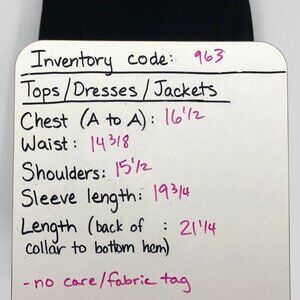 Inventory code: 963
Tops/Dresses/Jackets
Chest (A to A): 16 1/2
Waist: 14 3/8
Shoulders: 15 1/2
Sleeve length: 19 3/4
Length (back of : 21 1/4
collar to bottom hem)
- no care/fabric tag